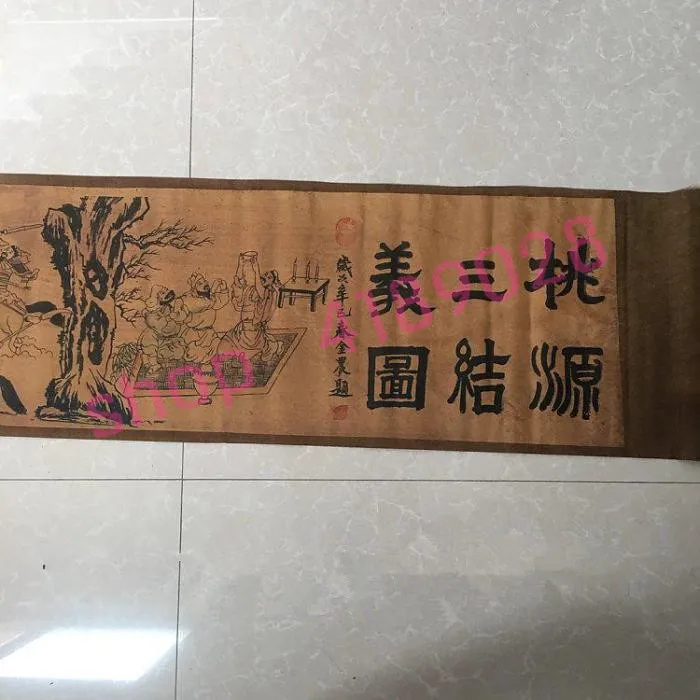 桃源
三結
義圖
歲年春金農題
shop 4189028